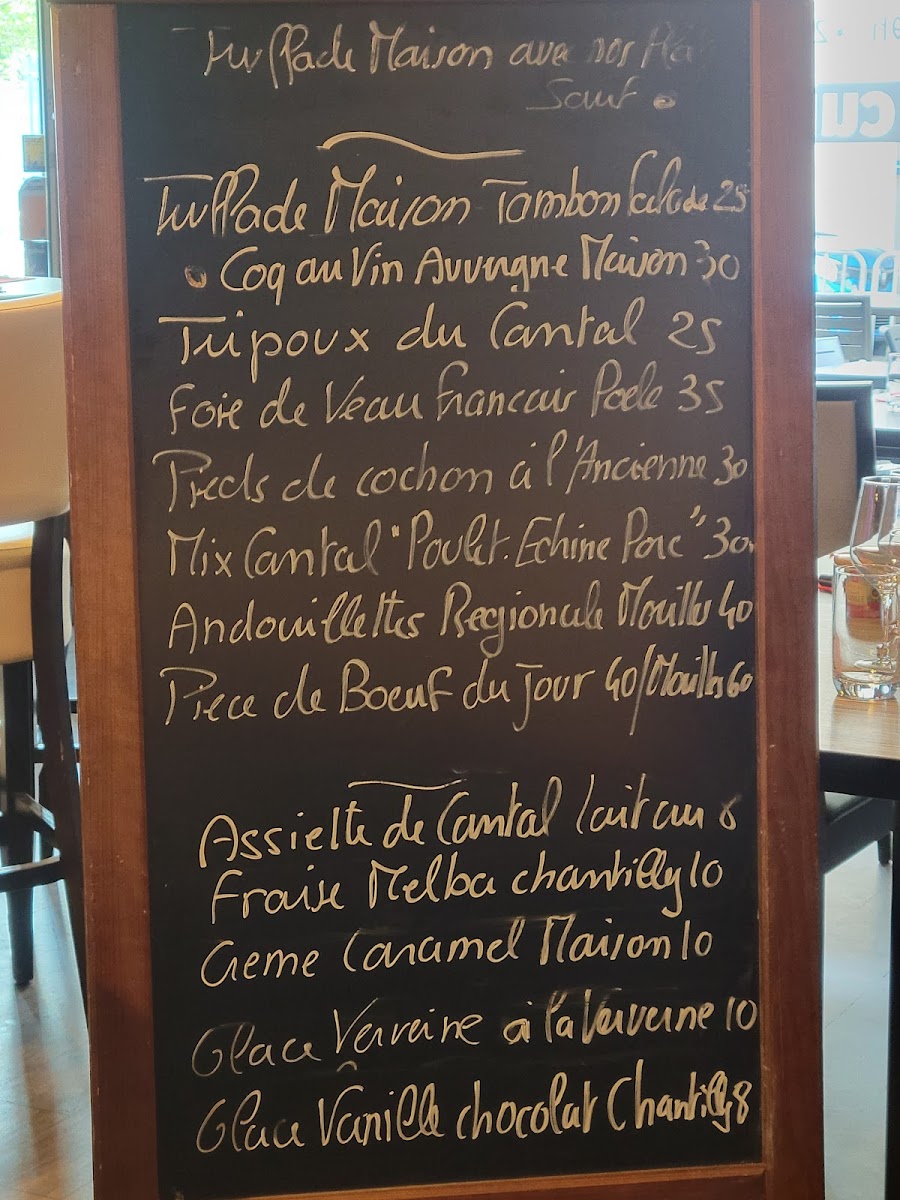 Truffade Maison avec nos Pla
Sauf •
Truffade Maison Jambon Salade 25
• Coq au Vin Auvergne Maison 30
Tripoux du Cantal 25
Foie de Veau Francais Poele 35
Pieds de cochon à l'Ancienne 30
Mix Cantal "Poulet. Echine Porc" 30
Andouillettes Regionale Morilles 40
Piece de Boeuf du Jour 40/Morilles 60
Assiette de Cantal lait cru 8
Fraise Melba chantilly 10
Creme Caramel Maison 10
Glace Verveine à la Verveine 10
Glace Vanille chocolat Chantilly 8
cu